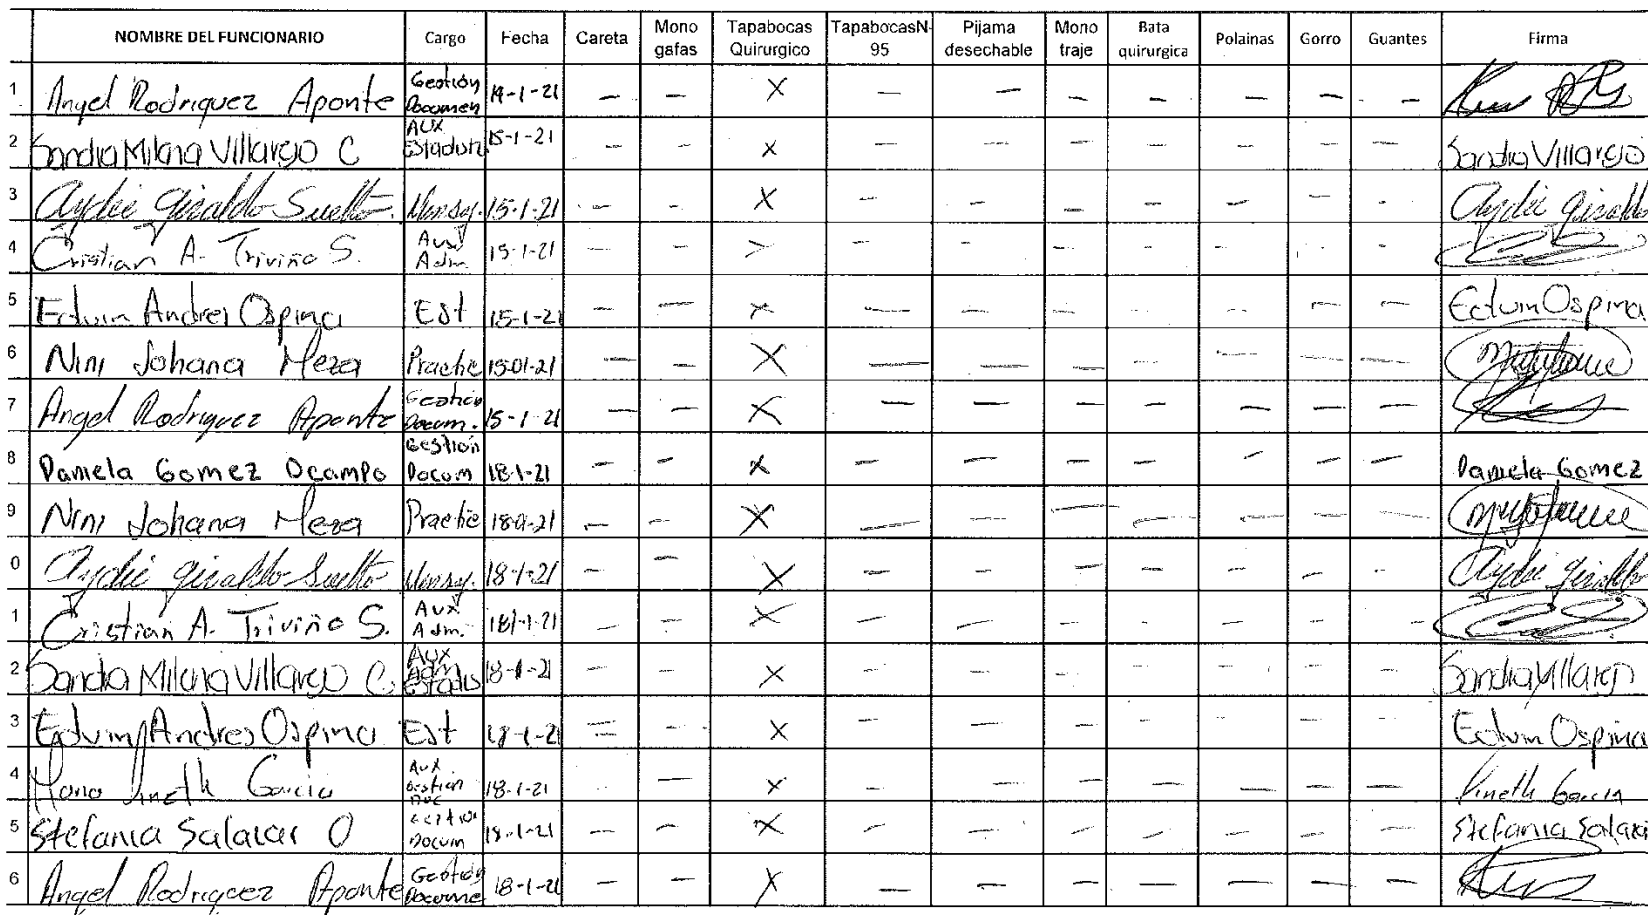 NOMBRE DEL FUNCIONARIO Cargo Fecha Careta Mono gafas Tapabocas Quirurgico TapabocasN-95 Pijama desechable Mono traje Bata quirurgica Polainas Gorro Guantes Firma
1 Angel Rodriguez Aponte Gestión Documen 14-1-21 — — X — — — — — — —
2 Sandra Milena Villarejo C AUX Estadist 15-1-21 — — X — — — — — — — Sandra Villarejo
3 Aydée Giraldo Suelto. Mensaj. 15-1-21 — — X — — — — — — — Aydée Giraldo
4 Cristian A. Triviño S. Aux Adm. 15-1-21 — — X — — — — — — —
5 Edwin Andres Ospina Est 15-1-21 — — X — — — — — — — Edwin Ospina
6 Nini Johana Meza Practic 15-01-21 — — X — — — — — — —
7 Angel Rodriguez Aponte Gestión Docum. 15-1-21 — — X — — — — — — —
8 Daniela Gomez Ocampo Gestión Docum 18-1-21 — — X — — — — — — — Daniela Gomez
9 Nini Johana Meza Practic 18-01-21 — — X — — — — — — —
0 Aydée Giraldo Suelto Mensaj. 18-1-21 — — X — — — — — — — Aydée Giraldo
1 Cristian A. Triviño S. Aux Adm. 18-1-21 — — X — — — — — — —
2 Sandra Milena Villarejo C. Aux Adm Estadis 18-1-21 — — X — — — — — — — Sandra Villarejo
3 Edwin Andres Ospina Est 18-1-21 — — X — — — — — — — Edwin Ospina
4 Lineth Garcia Aux Gestion Doc 18-1-21 — — X — — — — — — — Lineth Garcia
5 Stefania Salazar O Gestion Docum 18-1-21 — — X — — — — — — — Stefania Salaza
6 Angel Rodriguez Aponte Gestión Docume 18-1-21 — — X — — — — — — —